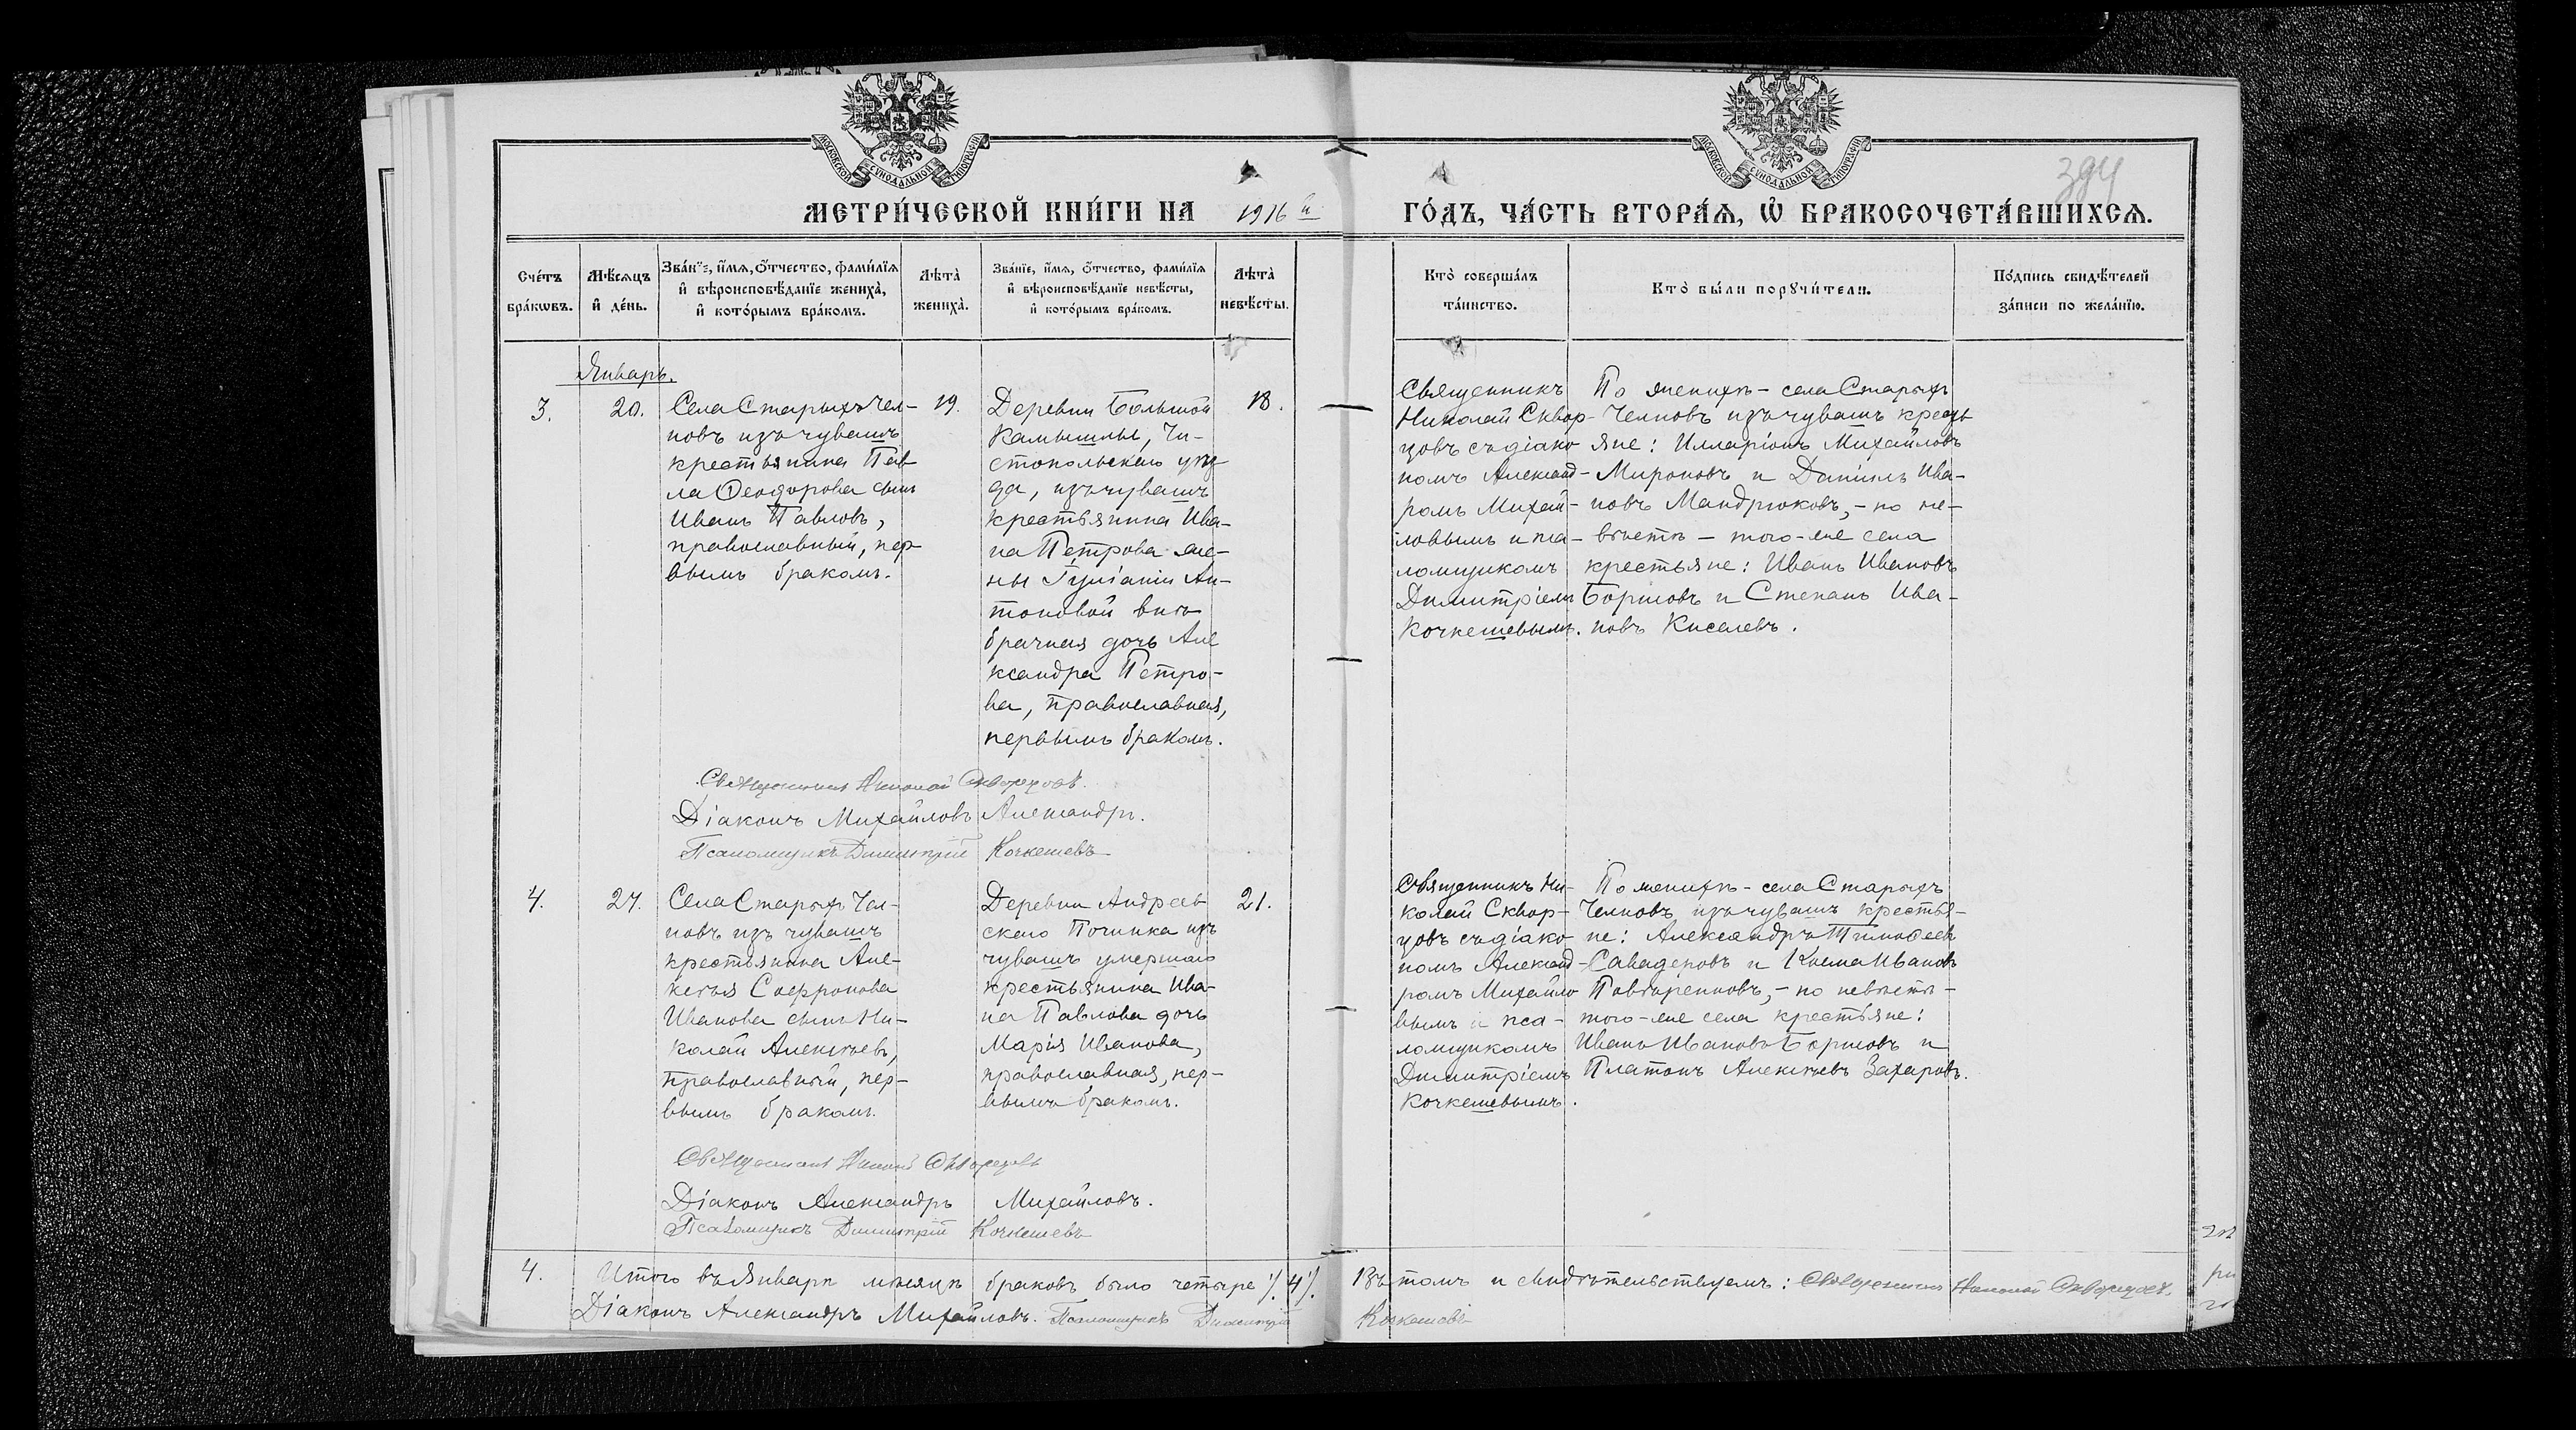 МОСКОВСКОЙ СѴНОДАЛЬНОЙ ТИПОГРАФІИ
МОСКОВСКОЙ СѴНОДАЛЬНОЙ ТИПОГРАФІИ
МЕТРИ́ЧЕСКОЙ КНИ́ГИ НА 1916 й ГО́ДЪ, ЧА́СТЬ ВТОРА́Ѧ, Ѡ҆ БРАКОСОЧЕТА́ВШИХСѦ.
Сче́тъ
бра́кѡвъ.
Мѣ́сѧцъ
и҆ де́нь.
Зва́нїе, и҆́мѧ, ѻ҆́тчество, фами́лїѧ
и҆ вѣроисповѣ́данїе жениха̀,
и҆ кото́рымъ бра́комъ.
Лѣта̀
жениха̀.
Зва́нїе, и҆́мѧ, ѻ҆́тчество, фами́лїѧ
и҆ вѣроисповѣ́данїе невѣ́сты,
и҆ кото́рымъ бра́комъ.
Лѣта̀
невѣ́сты.
Кто̀ соверша́лъ
та́инство.
Кто̀ бы́ли порꙋчи́тели.
По́дпись свидѣ́телей
за́писи по жела́нїю.
Январь.
3.
20.
Села Старыхъ Чел-
новъ изъ чувашъ
крестьянина Пав
ла Ѳеодорова сынъ
Иванъ Павловъ,
православный, пер-
вымъ бракомъ.
19.
Деревни Большой
Камышлы, Чи-
стопольскаго уѣз-
да, изъ чувашъ
крестьянина Ива-
на Петрова же-
ны Іуліаніи Ан-
тоновой внѣ-
брачная дочь Але
ксандра Петро-
ва, православная,
первымъ бракомъ.
18.
Священникъ
Николай Сквор-
цовъ съ діако
номъ Александ-
ромъ Михай-
ловымъ и пса-
ломщикомъ
Димитріемъ
Кочкешевымъ.
По женихѣ - села Старыхъ
Челновъ изъ чувашъ кресть
яне: Илларіонъ Михайловъ
Мироновъ и Даніилъ Ива-
новъ Мандрюковъ, - по не-
вѣстѣ - того-же села
крестьяне: Иванъ Ивановъ
Борисовъ и Степанъ Ива-
новъ Киселевъ.
Священникъ Николай Скворцовъ.
Діаконъ Михайловъ Александръ.
Псаломщикъ Димитрій Кочкешевъ
4.
27.
Села Старыхъ Чел-
новъ изъ чувашъ
крестьянина Але-
ксѣя Софронова
Иванова сынъ Ни-
колай Алексѣевъ,
православный, пер-
вымъ бракомъ.
Деревни Андреев
скаго Починка изъ
чувашъ умершаго
крестьянина Ива-
на Павлова дочь
Марія Иванова,
православная, пер-
вымъ бракомъ.
21.
Священникъ Ни-
колай Сквор-
цовъ съ діако
номъ Александ-
ромъ Михайло
вымъ и пса-
ломщикомъ
Димитріемъ
Кочкешевымъ.
По женихѣ - села Старыхъ
Челновъ изъ чувашъ крестья-
не: Александръ Тимоѳеев
и Косма Ивановъ
- по невѣстѣ -
того-же села крестьяне:
Иванъ Ивановъ Борисовъ и
Платонъ Алексѣевъ Захаровъ.
Священникъ Николай Скворцовъ
Діаконъ Александръ Михайловъ.
Псаломщикъ Димитрій Кочкешевъ
4. Итого въ Январѣ мѣсяцѣ браковъ было четыре ٪ 4 ٪. Въ томъ и свидѣтельствуемъ: Священникъ Николай Скворцовъ.
Діаконъ Александръ Михайловъ. Псаломщикъ Димитрій Кочкешевъ